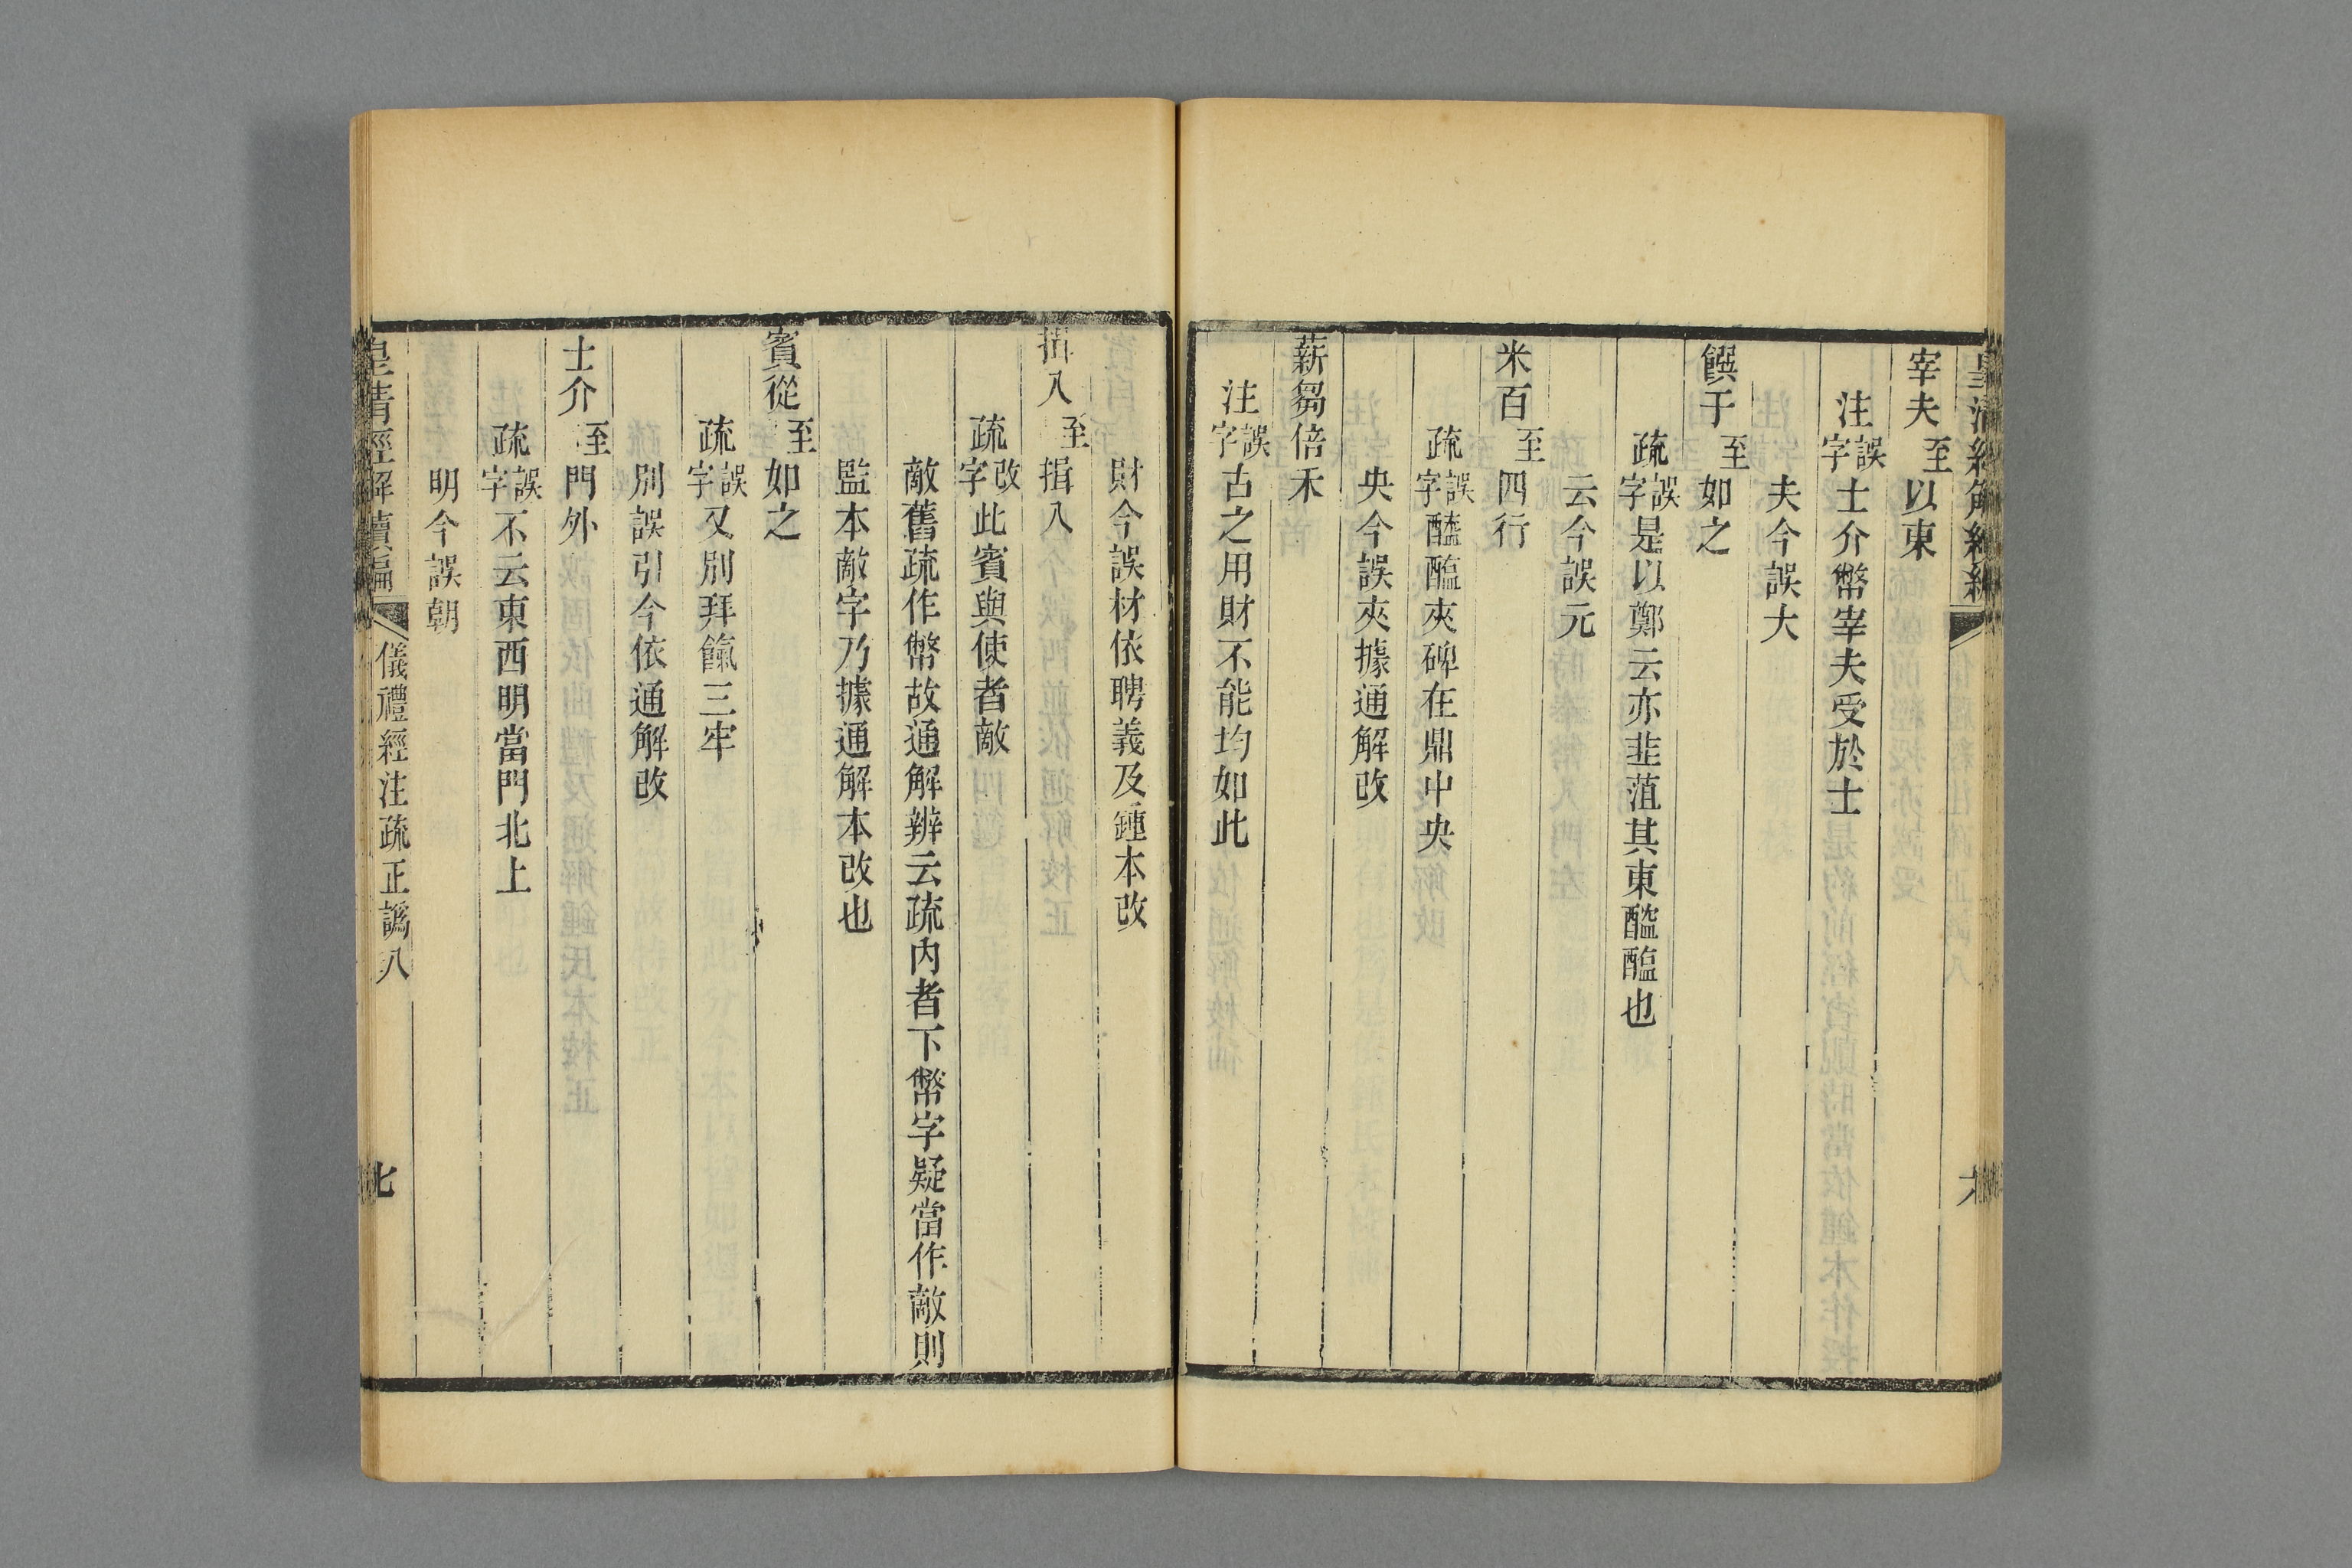 皇清經解續編
宰夫至以東
注誤字士介幣宰夫受於士
夫今誤大
饌于至如之
疏誤字是以鄭云亦韭菹其東醓醢也
云今誤元
米百至四行
疏誤字醯醢夾碑在鼎中央
央今誤夾據通解改
薪芻倍禾
注誤字古之用財不能均如此
財今誤材依聘義及鍾本改
揖入至揖入
疏改字此賓與使者敵
敵舊疏作幣故通解辨云疏内者下幣字疑當作敵則
監本敵字乃據通解本改也
賓從至如之
疏誤字又別拜餼三牢
別誤引今依通解改
士介至門外
疏誤字不云東西明當門北上
明今誤朝
皇清經解續編 儀禮經注疏正譌八